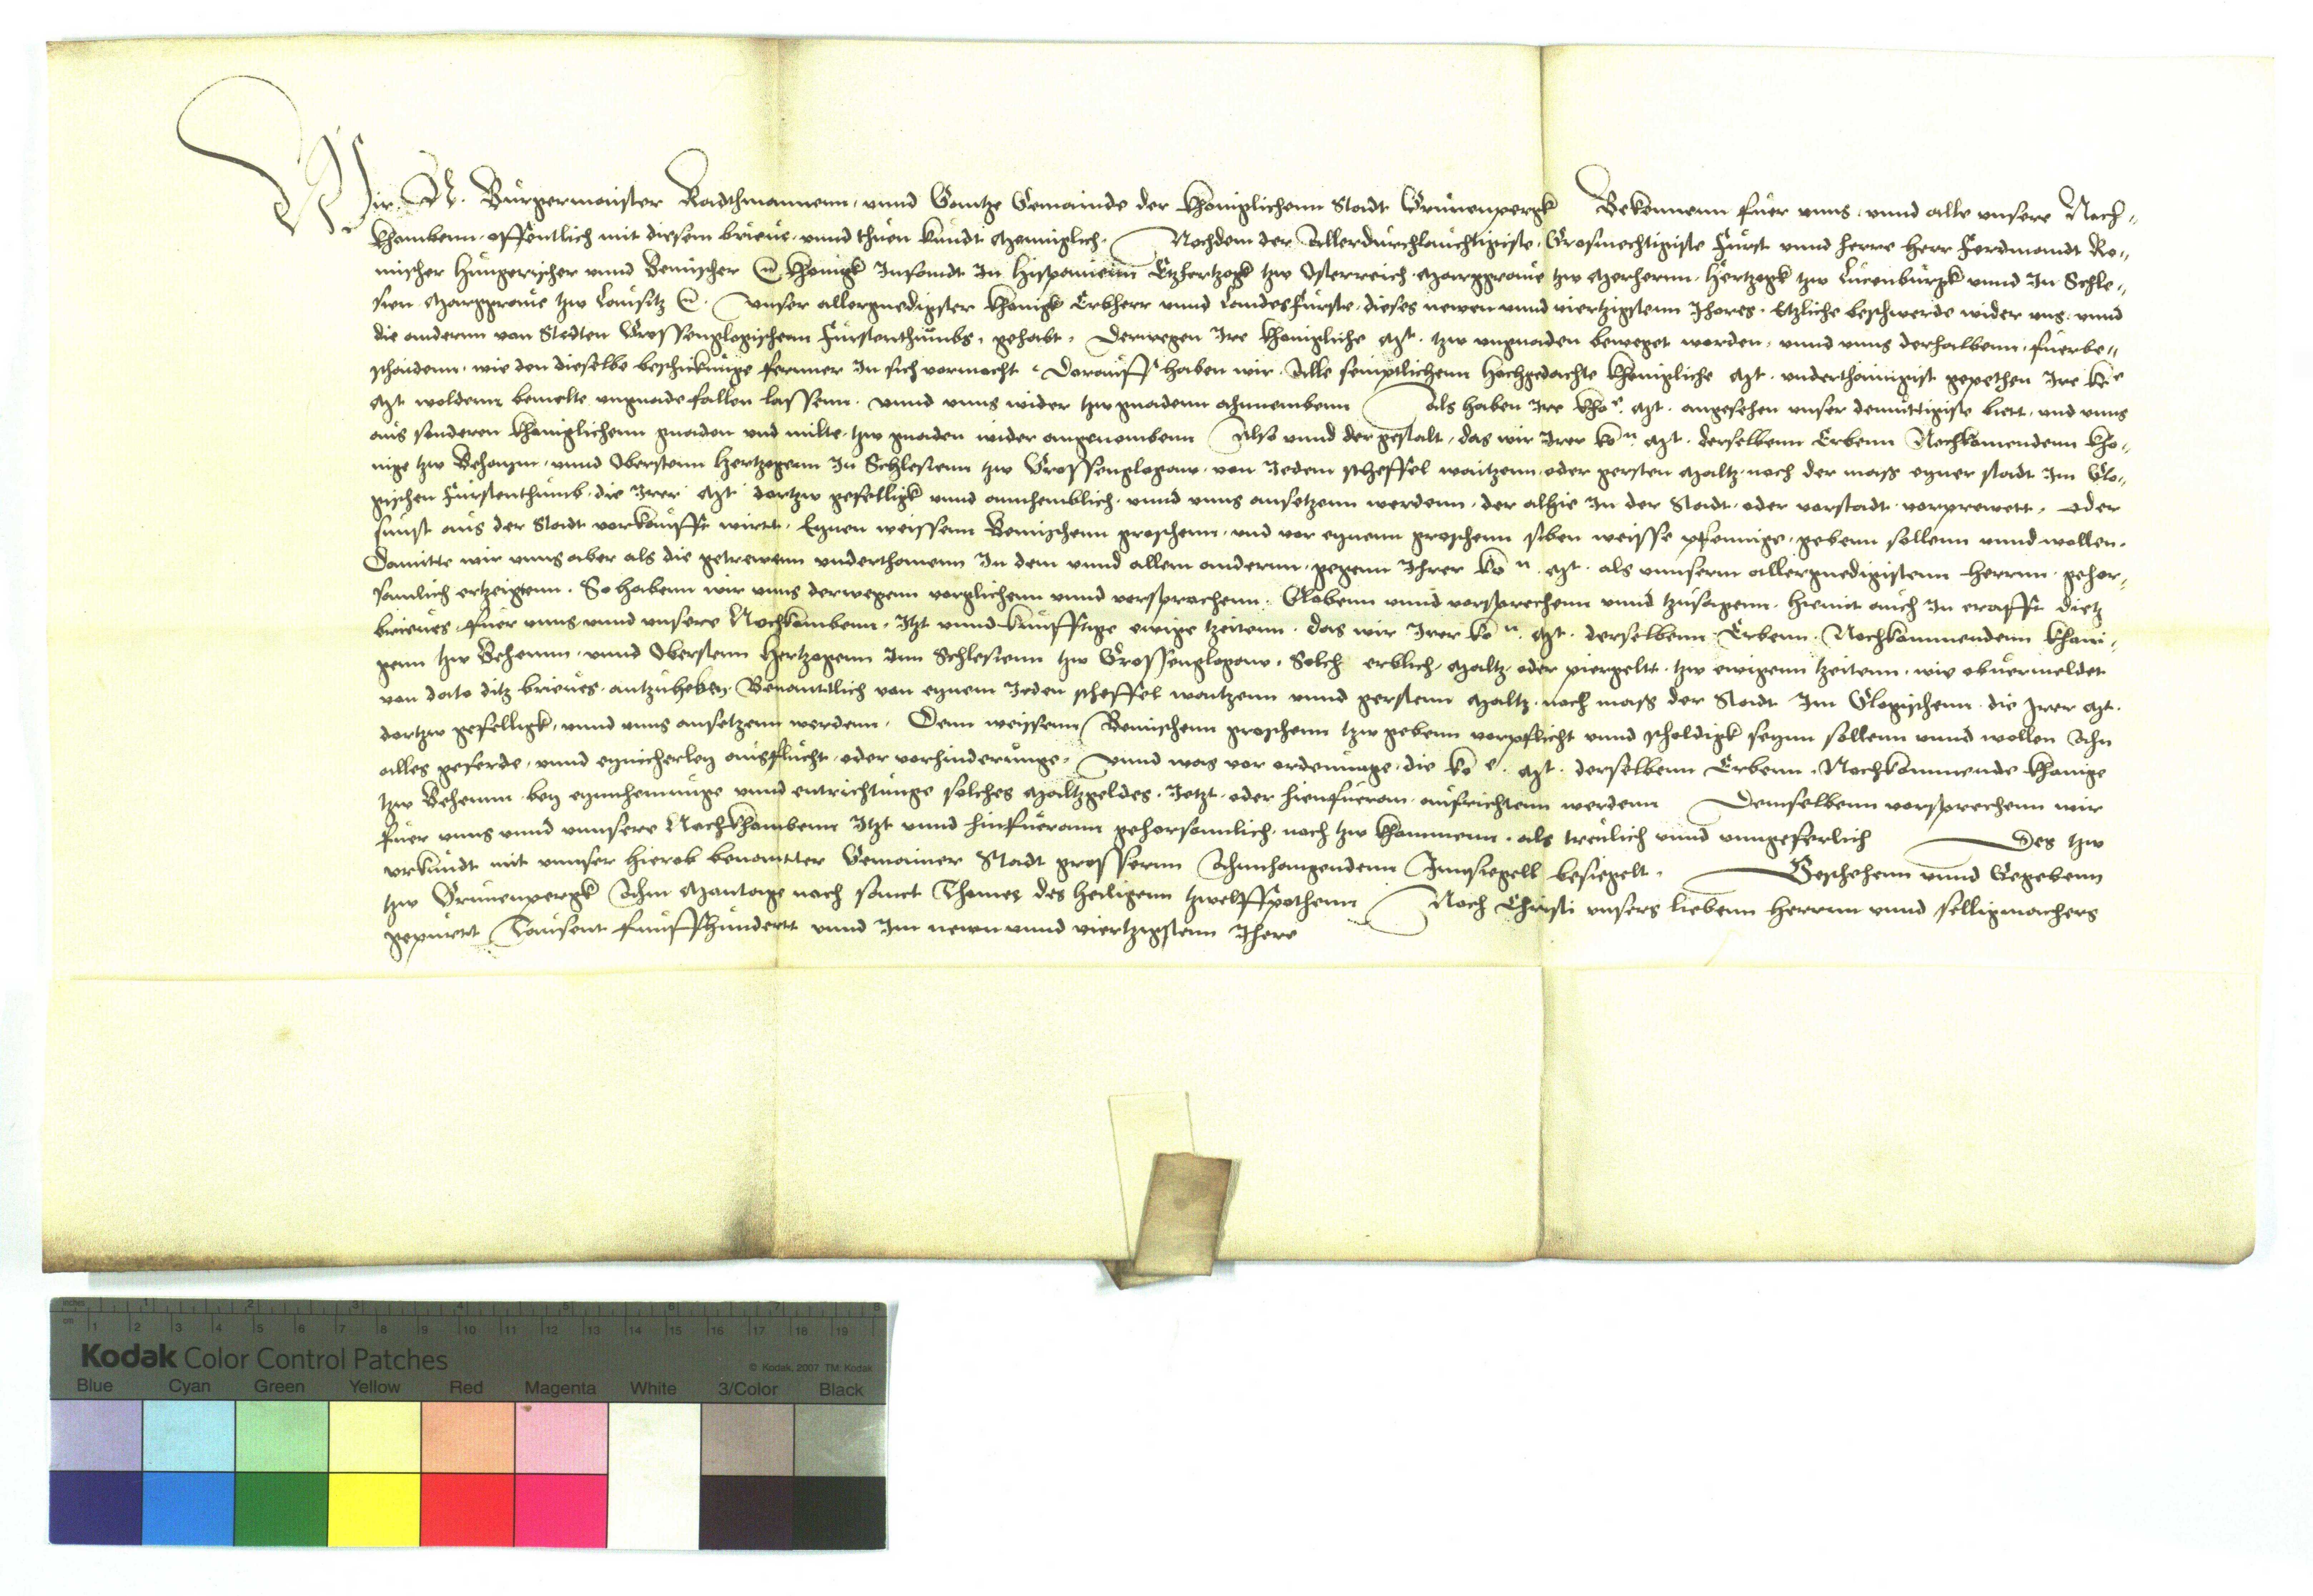 Wir N. Burgermaister Radthmannenn, unnd Gantze Gemainde der Khoniglichenn Stadt Grunenpergk Bekennenn fuer unns, unnd alle unsere Nach=
khombenn, offentlich mit diesem brieue, unnd thuen kundt Meniglich, Nachdem der Allerdurchlauchtigiste, Grosmechtigiste Furst unnd herre Herr Ferdinandt Ro=
mischer Hungerischer unnd Bemischer &c Khonigk Infandt In Hispanienn Ertzhertzogk tzw Osterreich, Marggraue tzw Merhernn, Hertzogk tzw Lucenburgk unnd In Schle=
sien Marggraue tzw Lausitz &c. unser allergnedigster khonigk Erbherr unnd Landesfurste, dieses newen unnd viertzigstenn Jhores, Etzliche beschwerde wider uns, unnd
die anderen von Stedten Grossenglogischenn Furstenthumbs, gehabt, Derwegen Ire khonigliche Mt. tzw ungnaden beweget worden, unnd unns derhalbenn, fuerbe=
schaidenn, wie den dieselbe beschickunge fernner In sich vormocht, Darauff haben wir, Alle semptlichenn Hochgedachte khonigliche Mt. underthainigist gepethen Ire ko e
Mt woldenn bemelte ungnade fallen lassenn, unnd unns wider tzw gnadenn ahnnembenn Als haben Ire kho e. Mt. angesehen unser demuttigiste biett, und unns
aus sonderen khoniglichenn gnaden und milte, tzw gnaden wider angenombenn Also unnd der gestalt, das wir Irer ko n Mt. derselbenn Erbenn Nachkomendenn kho=
nige tzw Behaym, unnd Oberstenn Hertzogenn In Schlesienn tzw Grossenglogaw, von Jedem scheffel waitzenn, oder gersten Maltz, nach der mass eyner stadt Im Glo=
gischen Furstenthumb, die Irer Mt dartzw gefelligk unnd annhemblich, unnd unns ansetzenn werdenn, der alhie In der Stadt, oder vorstadt, vorprewett, oder
sunst aus der Stadt vorkaufft wirtt, Eynen weissenn Bemischenn groschenn, und vor eynenn groschenn siben weisse pfennige, gebenn sollenn unnd wollen.
Domitte wir unns aber als die getrewenn underthonenn In dem unnd allem anderenn, gegenn Ihrer ko n. Mt. als unnserm allergnedigistenn Herrnn, gehor=
samlich ertzeigenn, So habenn wir unns derwegenn vorglichenn unnd versprochenn, Globenn unnd vorsprechenn unnd tzusagenn, hiemit auch In crafft dietz
brieues, fuer unns unnd unsere Nachkombenn, Itzt unnd kunfftige ewige tzeitenn, das wir Irer ko n. Mt. derselbenn Erbenn, Nachkommendenn khoni=
genn tzw Behemm, unnd Oberstenn Hertzogenn Inn Schlesienn tzw Grossenglogaw, Solch erblich, Maltz, oder piergeltt, tzw ewigenn tzeitenn, wie obuermeldet
von dato ditz brieues, antzuheben, Benanttlich von eynem Jeden scheffel waitzenn unnd gerstenn Maltz, nach mass der Stadt Im Glogischenn, die Irer Mt.
dartzw gefelligk, unnd unns ansetzenn werdenn, Denn weissenn Bemischenn groschenn tzw gebenn vorpflicht unnd scholdigk seynn sollenn unnd wollen Ahn
alles geferde, unnd eynicherley ausflucht, oder vorhinderunge, unnd was vor ordenunge, die ko e. Mt. derselbenn Erbenn, Nachkommende khonige
tzw Behemm, bey eynnhemunge unnd entrichtunge solches Maltzgeldes, Jetzt, oder hienfueran, aufrichtenn werdenn Demselbenn vorsprechenn wir
fuer unns unnd unnsere Nachkhombenn Itzt unnd hinfuerann gehorsamlich, nach tzw khommenn, als treulich unnd unngeferlich Des tzw
urkundt mit unnser hierob benantter Gemainer Stadt grosserm Ahnhangendenn Innsiegell besiegelt, Geschehenn unnd Gegebenn
tzw Grunenpergk Ahm Mantage nach sanct Thomes des heiligenn tzwelffpothenn Nach Christi unsers liebenn Herrnn unnd seligmachers
gepurtt Tausent funffhundertt unnd Im newn unnd viertzigstenn Jhore
inches 1 2 3 4 5 6 7 8
cm 1 2 3 4 5 6 7 8 9 10 11 12 13 14 15 16 17 18 19
Kodak Color Control Patches © Kodak, 2007 TM: Kodak
Blue Cyan Green Yellow Red Magenta White 3/Color Black